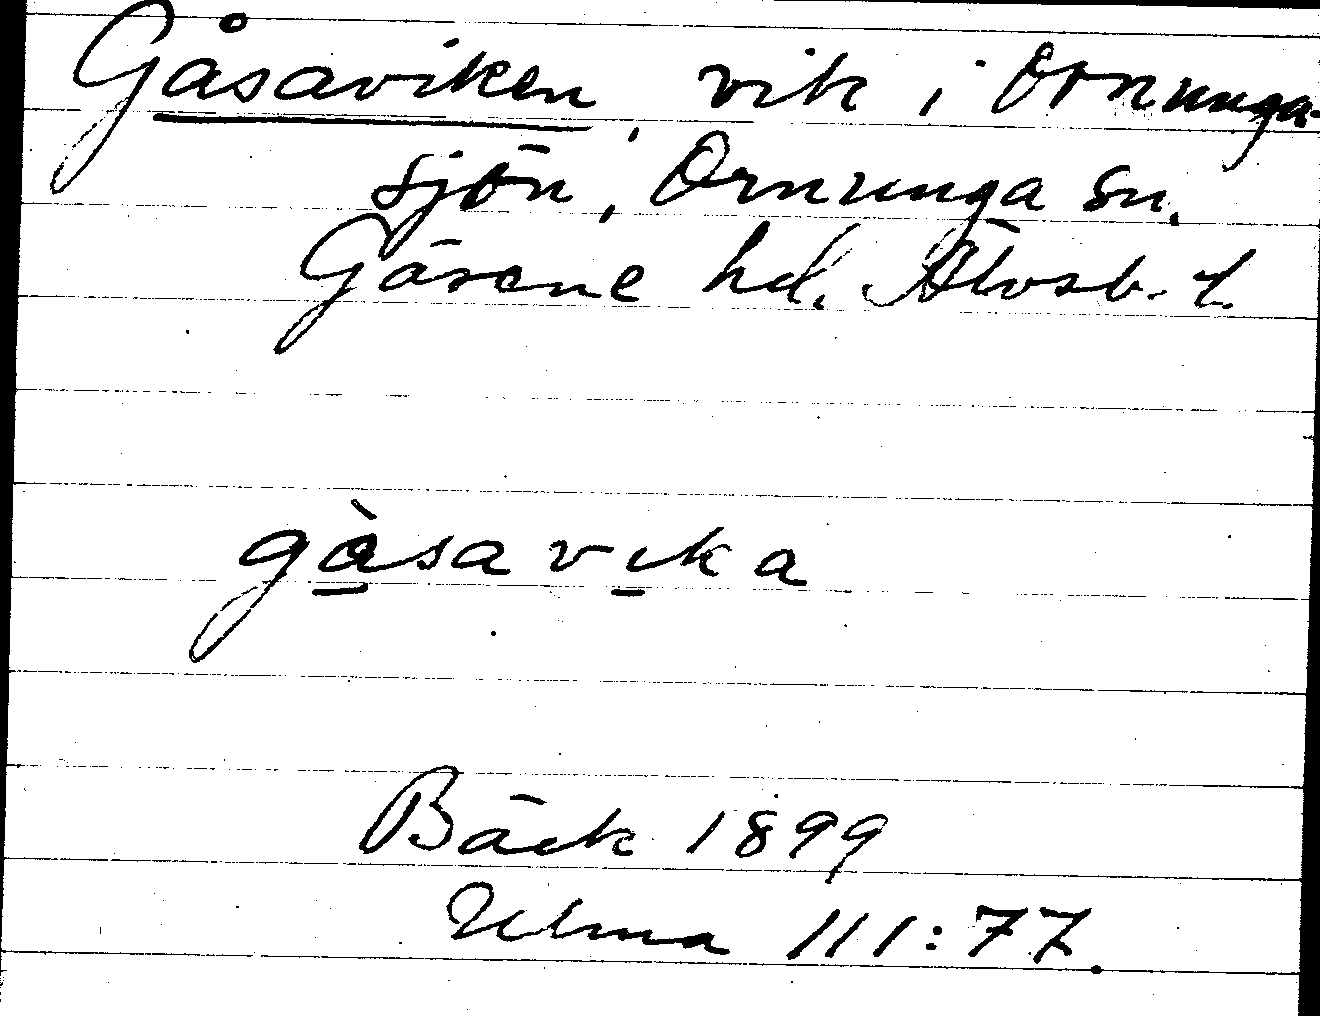 Gåsaviken, vik i Ornunga-
sjön, Ornunga sn.
Gäsene hd. Älvsb. l.
gàsavika
Bäck 1899
Ulma 111:77.